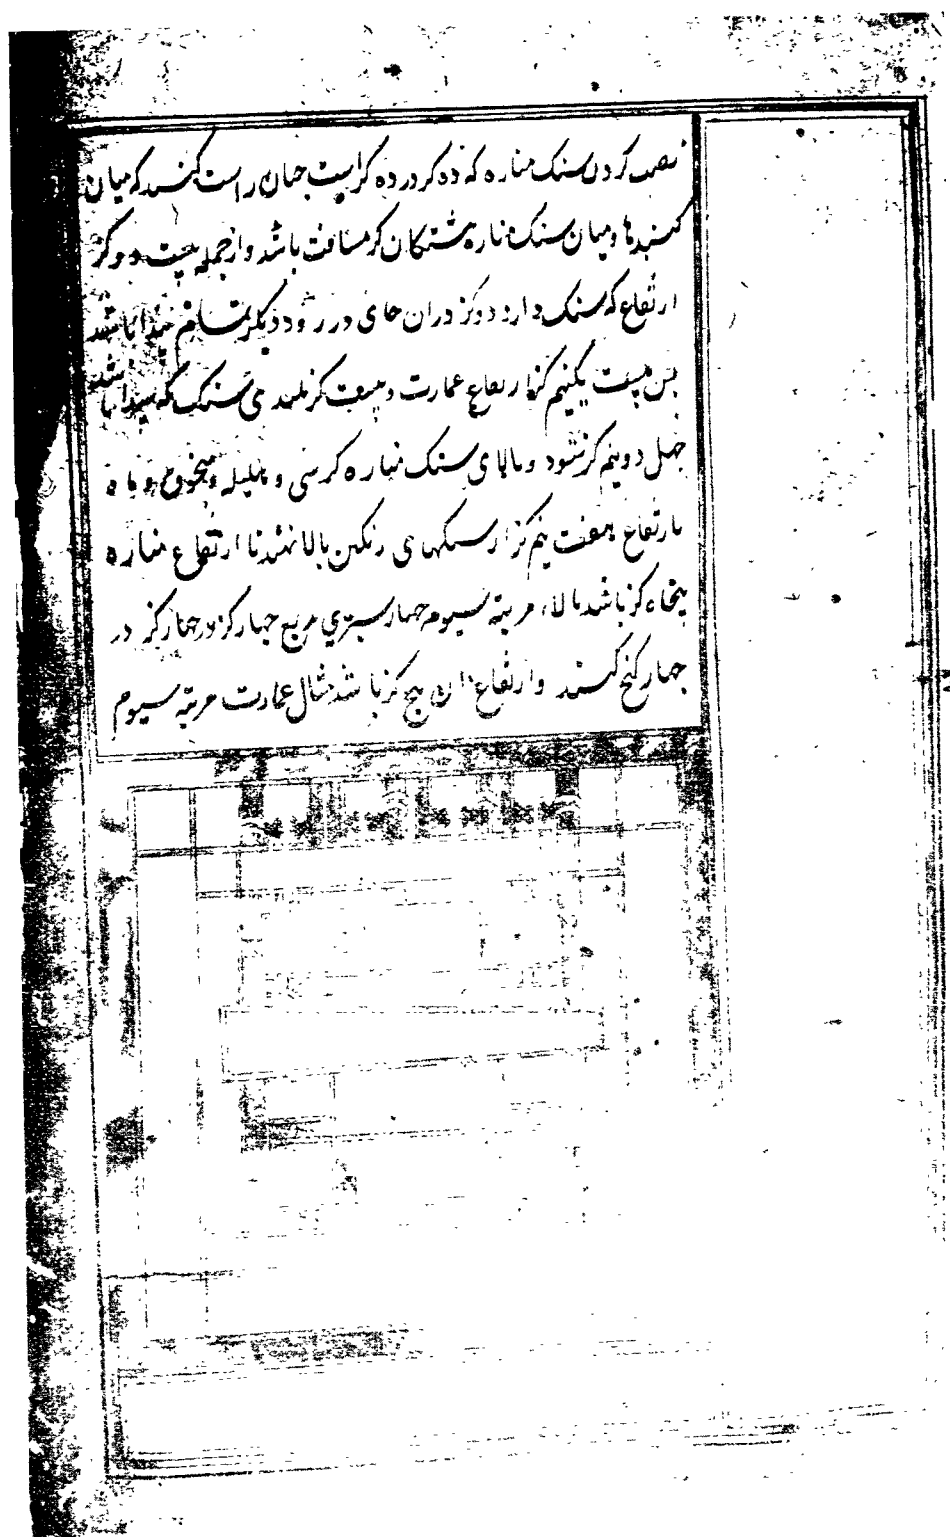 نصب کردن سنک مناره که ده کز در ده کز است جنان راست کنند که میان
کنبدها و میان سنک مناره هشتکان کز مسافت باشد و از جمله بیست دو کز
ارتفاع که سنک دارد دو کز در ان جای در رود و دیکر تمام پیدا باشد
بس بیست یکنیم کز ارتفاع عمارت و بیست کز بلندی سنک که پیدا باشد
جهل دو نیم کز شود و بالای سنک مناره کرسی و هلیله و
بارتفاع هفت نیم کز از سنکهای رنکین بالا نهند تا ارتفاع مناره
پنجاه کز باشد بالاء مرتبه سیوم جهار ستری مربع جهار کز در جهار کز در
جهار کنج کنند و ارتفاع ان پنج کز باشد مثال عمارت مرتبه سیوم